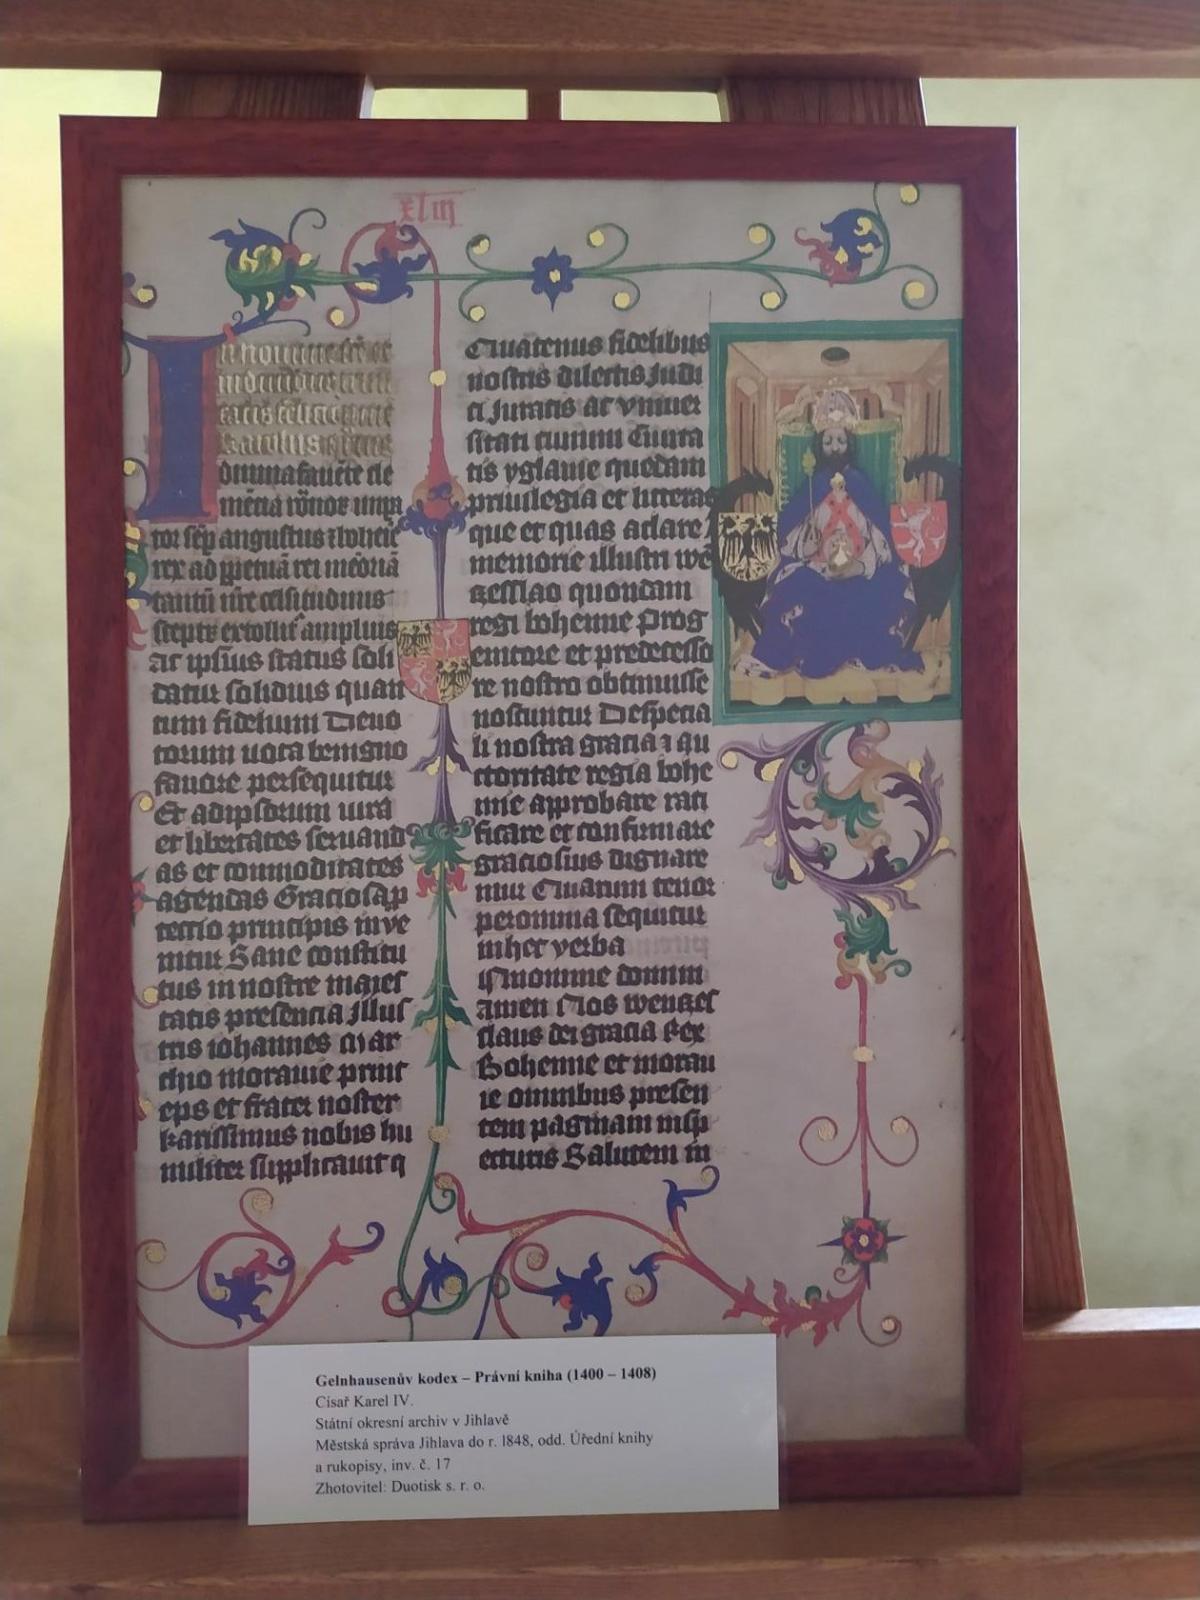 xliii
In nomine sce et
individue trini
tatis feliciter
karolus
divina favēte cle
mētia rōnor impa
tor sēp augustus et bohēie
rex ad ppetuā rei mēoriā
tantū nre celsitudinis
sceptr extollit amplius
ac ipsius status soli
datur solidius quan
tum fidelium Devo
torum vota benigno
favore persequitur
Et adipsorum iura
et libertates servand
as et commoditates
agendas Graciosa p
tectio principis inve
nitur Sane constitu
tus in nostre maies
tatis presencia illus
tris iohannes Mar
chio moravie princ
eps et frater noster
karissimus nobis hu
militer supplicavit q
Quatenus fidelibus
nostris dilectis Judi
ci Juratis ac vniuer
sitati civium Civita
tis yglavie quedam
privilegia et litteras
que et quas a clare
memorie illustri wē
zesslao quondam
regi bohemie Prog
enitore et predecesso
re nostro obtinuisse
noscuntur De specia
li nostra gracia et au
ctoritate regia bohe
mie approbare rati
ficare et confirmare
graciosius dignare
mur Quarum tenor
per omnia sequitur
in hec verba
In nomine domini
Amen Nos wenzes
slaus dei gracia Rex
Bohemie et morau
ie omnibus presen
tem paginam insp
ecturis Salutem in
Gelnhausenův kodex – Právní kniha (1400 – 1408)
Císař Karel IV.
Státní okresní archiv v Jihlavě
Městská správa Jihlava do r. 1848, odd. Úřední knihy
a rukopisy, inv. č. 17
Zhotovitel: Duotisk s. r. o.